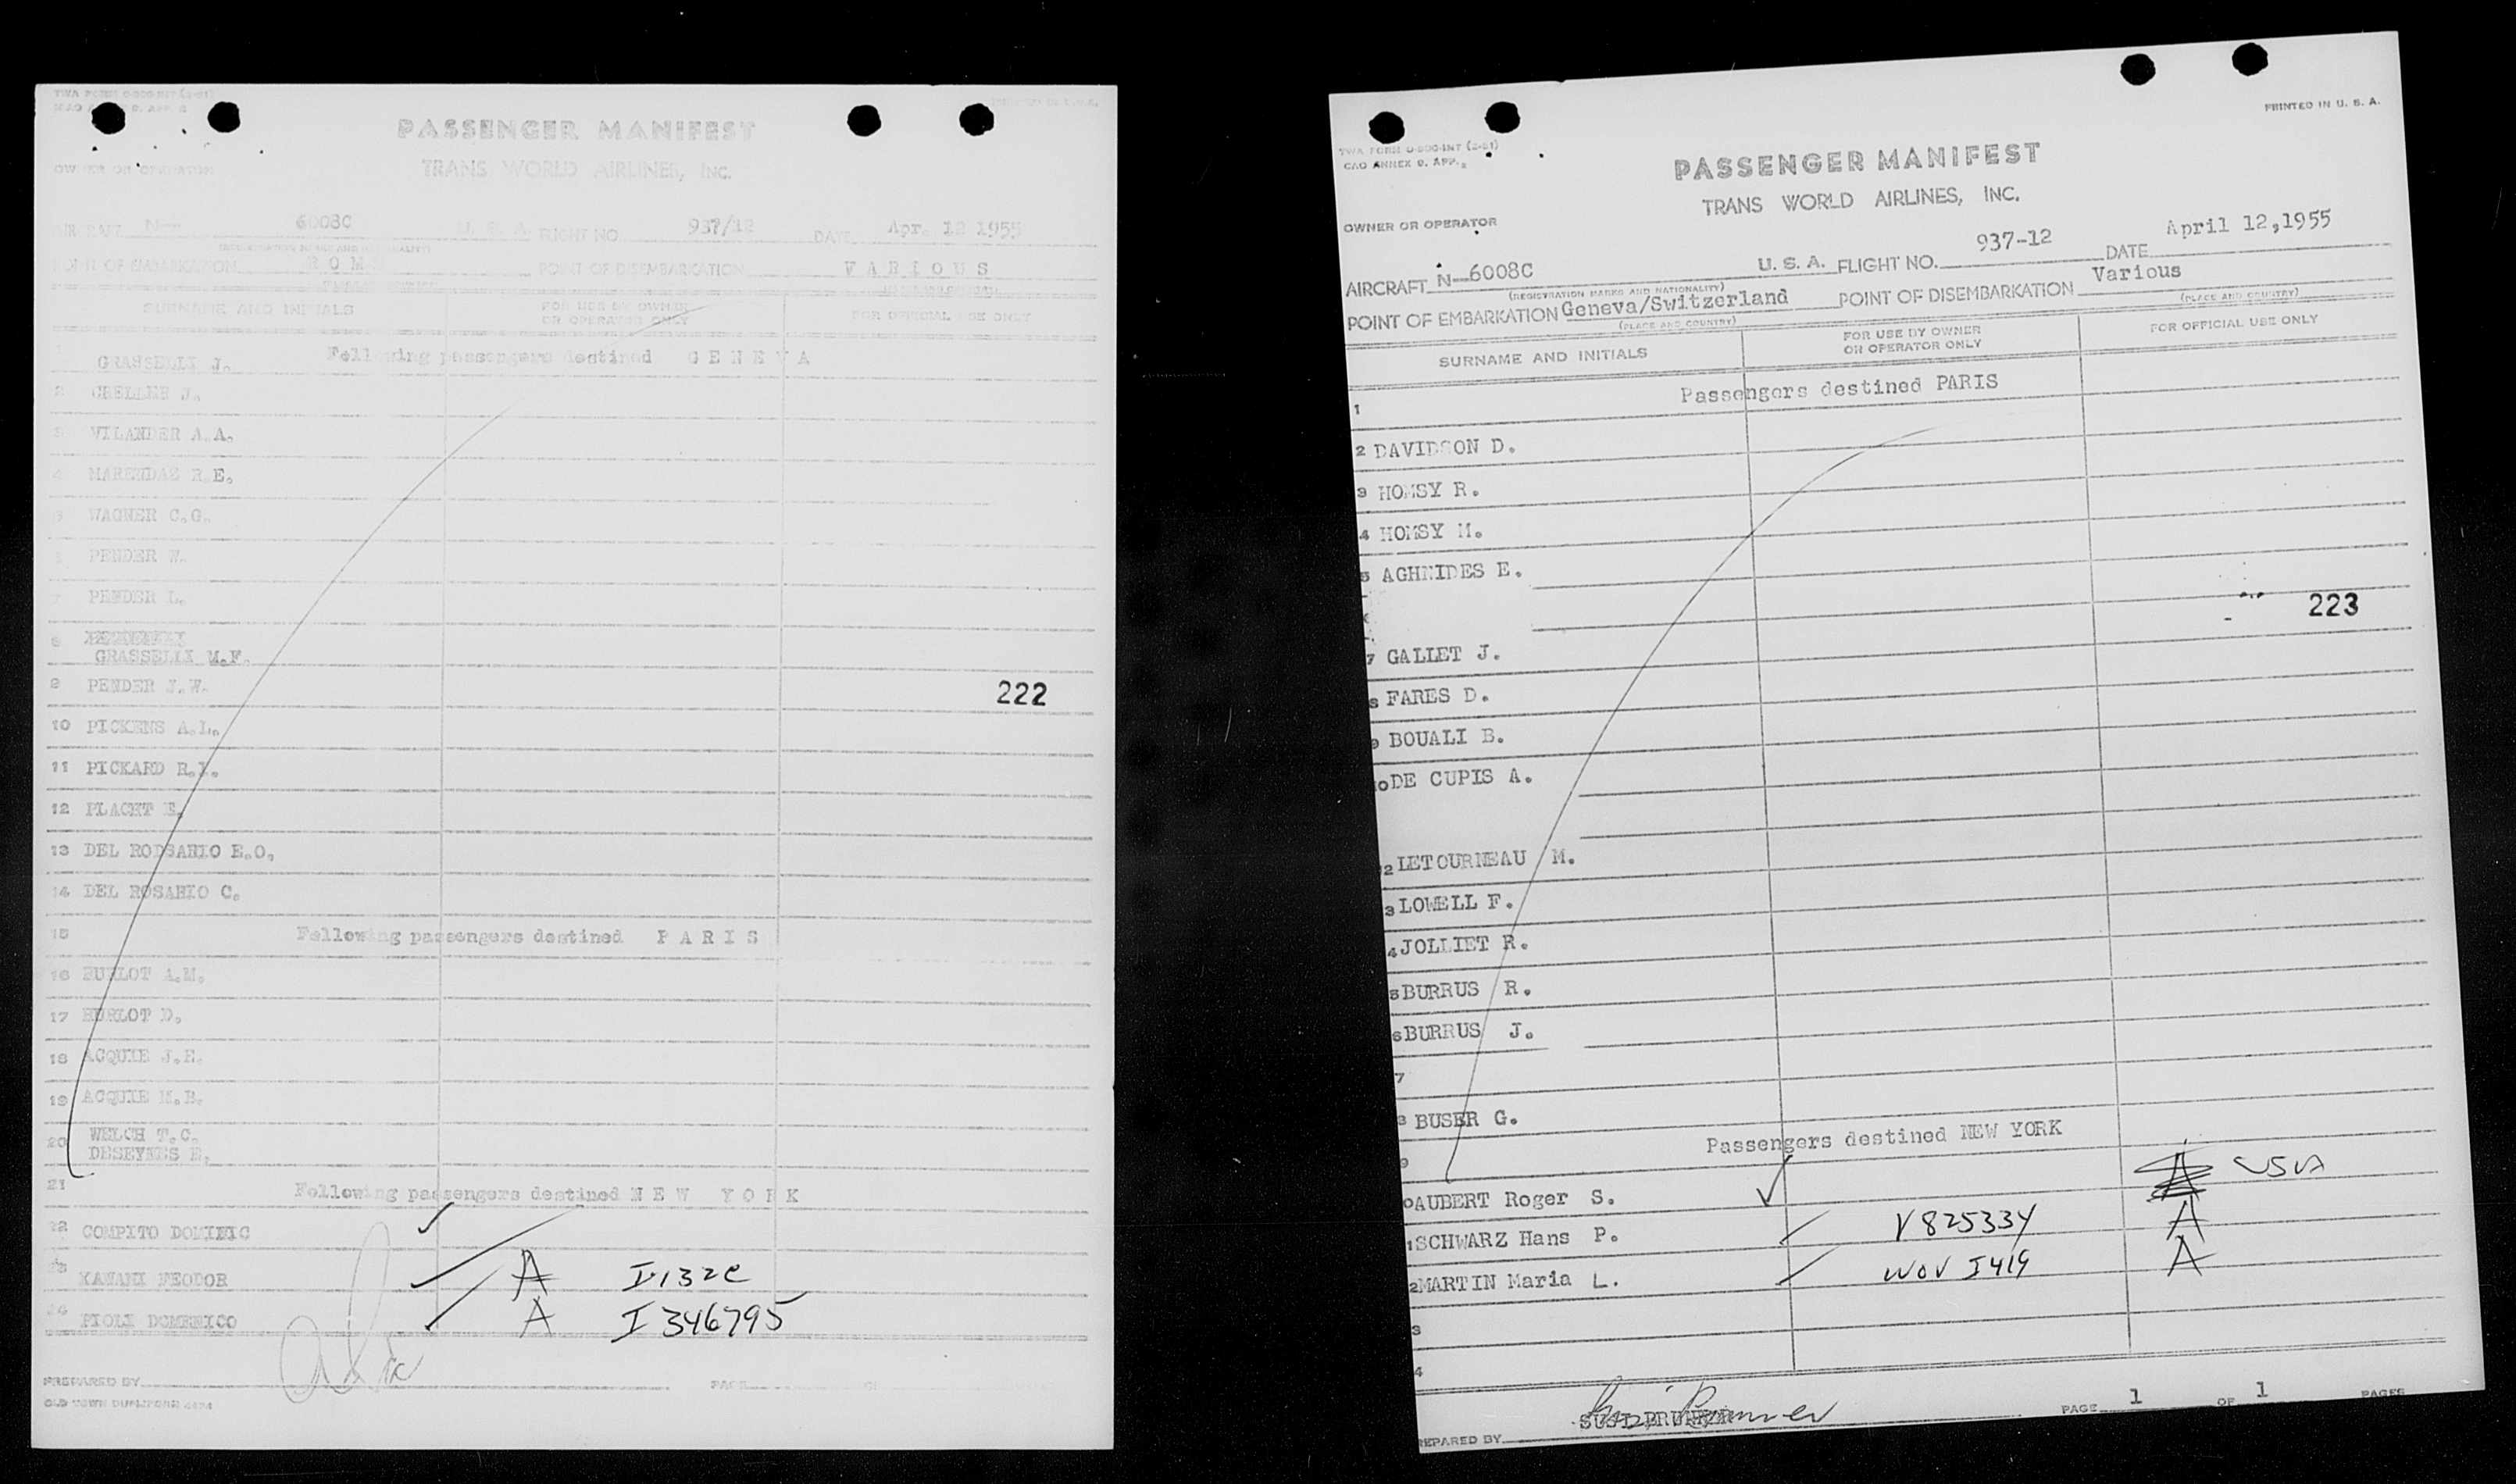 PASSENGER MANIFEST
TRANS WORLD AIRLINES, INC.
OWNER OR OPERATOR
6008C U. S. A. FLIGHT NO. 937/12 DATE Apr. 12 1955
POINT OF EMBARKATION ROME POINT OF DISEMBARKATION VARIOUS
SURNAME AND INITIALS FOR USE BY OWNER OR OPERATOR ONLY FOR OFFICIAL USE ONLY
Following passengers destined GENEVA
GRASSELLI J.
2
3 VILANDER A.A.
4 R.E.
WAGNER C.G.
PENDER W.
7 PENDER L.
8
GRASSELLI M.F.
9 PENDER J.W.
222
10 PICKENS A.L.
11 PICKARD R.
12 PLACHT E.
13 DEL RODSARIO E.O.
14 DEL ROSARIO C.
15 Following passengers destined PARIS
16 A.M.
17 D.
18 ACQUIE J.E.
19 ACQUIE M.B.
20 WELCH T.C.
DESEYNES E.
21 Following passengers destined NEW YORK
22 COMPITO DOMINIC
FEODOR A
DOMENICO A I 346795
PREPARED BY PAGE OF
PRINTED IN U. S. A.
TWA FORM
PASSENGER MANIFEST
TRANS WORLD AIRLINES, INC.
OWNER OR OPERATOR
AIRCRAFT N-6008C U. S. A. FLIGHT NO. 937-12 DATE April 12,1955
(REGISTRATION MARKS AND NATIONALITY)
POINT OF EMBARKATION Geneva/Switzerland POINT OF DISEMBARKATION Various
(PLACE AND COUNTRY) (PLACE AND COUNTRY)
SURNAME AND INITIALS FOR USE BY OWNER OR OPERATOR ONLY FOR OFFICIAL USE ONLY
1 Passengers destined PARIS
2 DAVIDSON D.
3 HOMSY R.
4 HOMSY M.
5 AGHNIDES E.
223
7 GALLET J.
8 FARES D.
9 BOUALI B.
0 DE CUPIS A.
2 LETOURNEAU M.
3 LOWELL F.
4 JOLLIET R.
5 BURRUS R.
6 BURRUS J.
7
8 BUSER G.
9 Passengers destined NEW YORK
0 AUBERT Roger S. USA
1 SCHWARZ Hans P. V825334 A
2 MARTIN Maria L. A
3
4
PREPARED BY PAGE 1 OF 1 PAGES